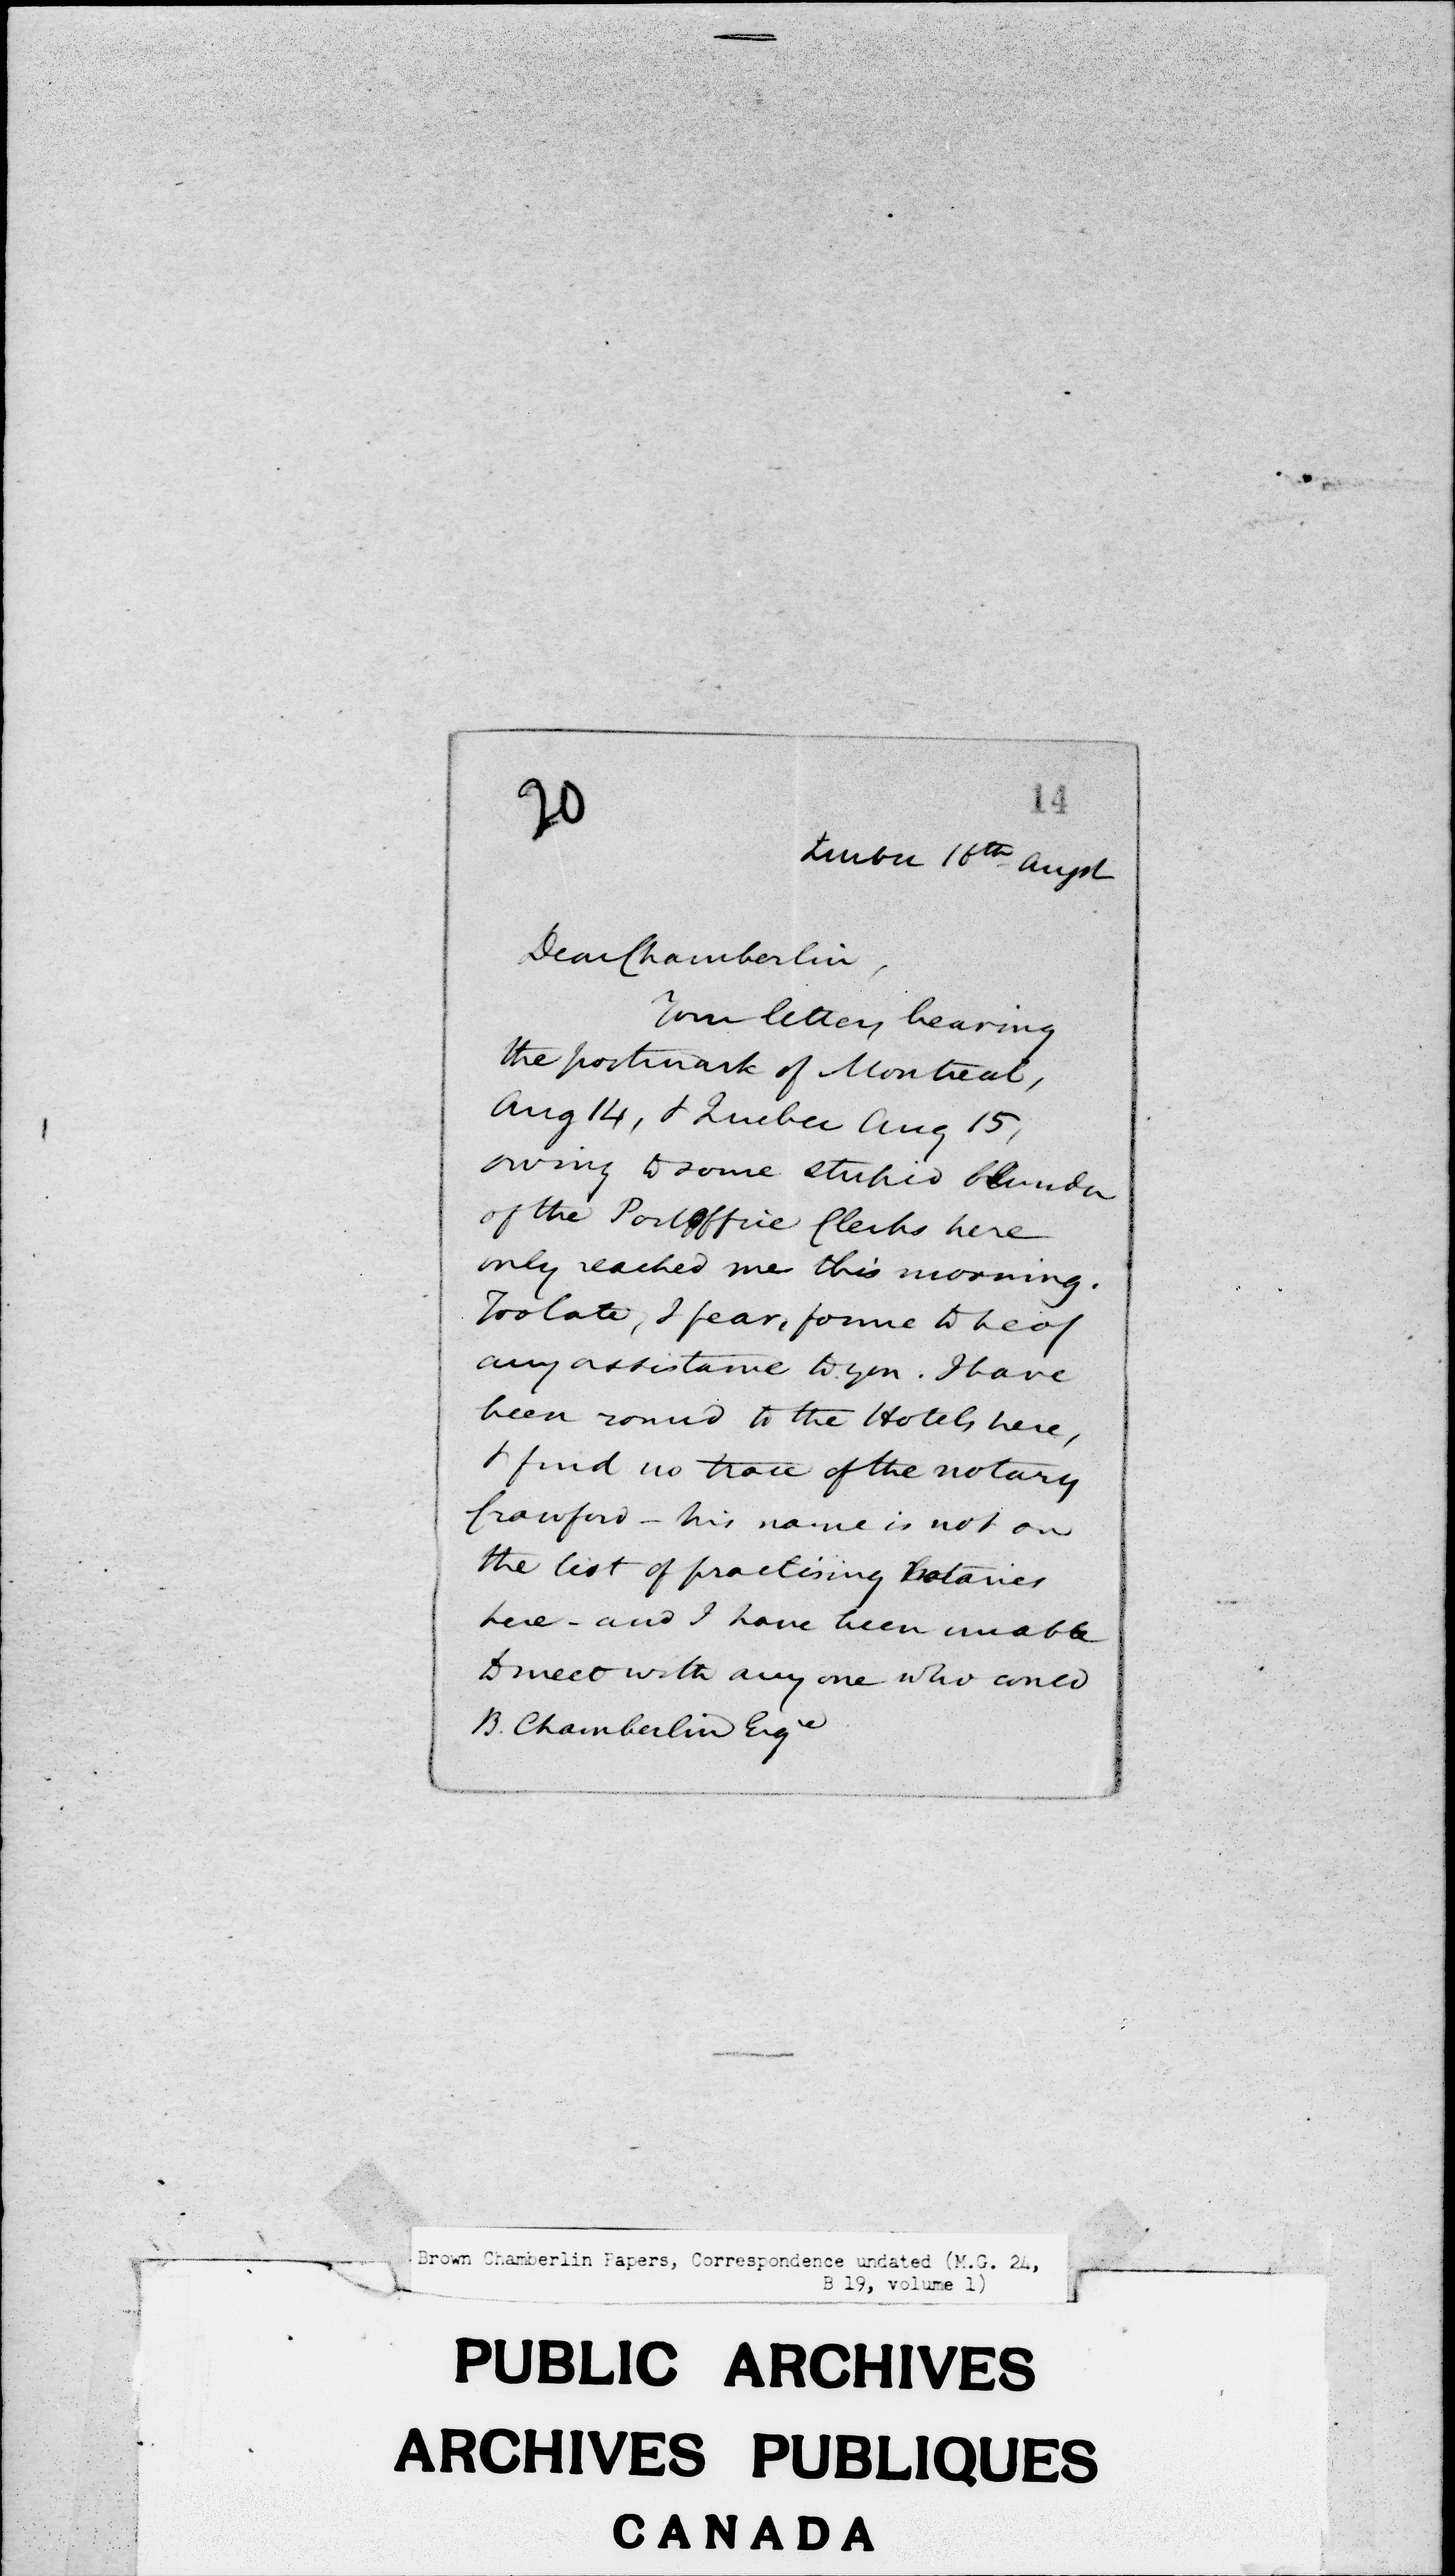 20
14
Quebec 16th Augst
Dear Chamberlin,
Your letter, bearing
the postmark of Montreal,
Aug 14, & Quebec Aug 15,
owing to some stupid blunder
of the Post Office Clerks here
only reached me this morning.
Too late, I fear, for me to be of
any assistance to you. I have
been round to the Hotels here,
& find no trace of the notary
Crawford - his name is not on
the list of practising Notaries
here - and I have been unable
to meet with any one who could
B. Chamberlin Esqre
Brown Chamberlin Papers, Correspondence undated (M.G. 24,
B 19, volume 1)
PUBLIC ARCHIVES
ARCHIVES PUBLIQUES
CANADA